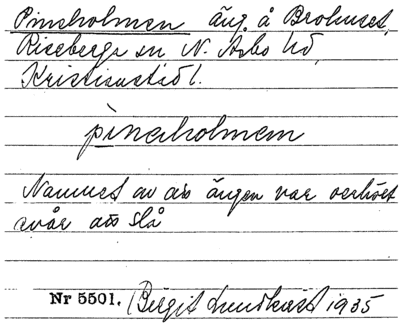 Pineholmen äng å Brohuset,
Riseberga sn N. Åsbo hd,
Kristianstad l.
pineholmem
Namnet av att ängen var oerhört
svår att slå
Nr 5501. Birgit Lundkvist 1935